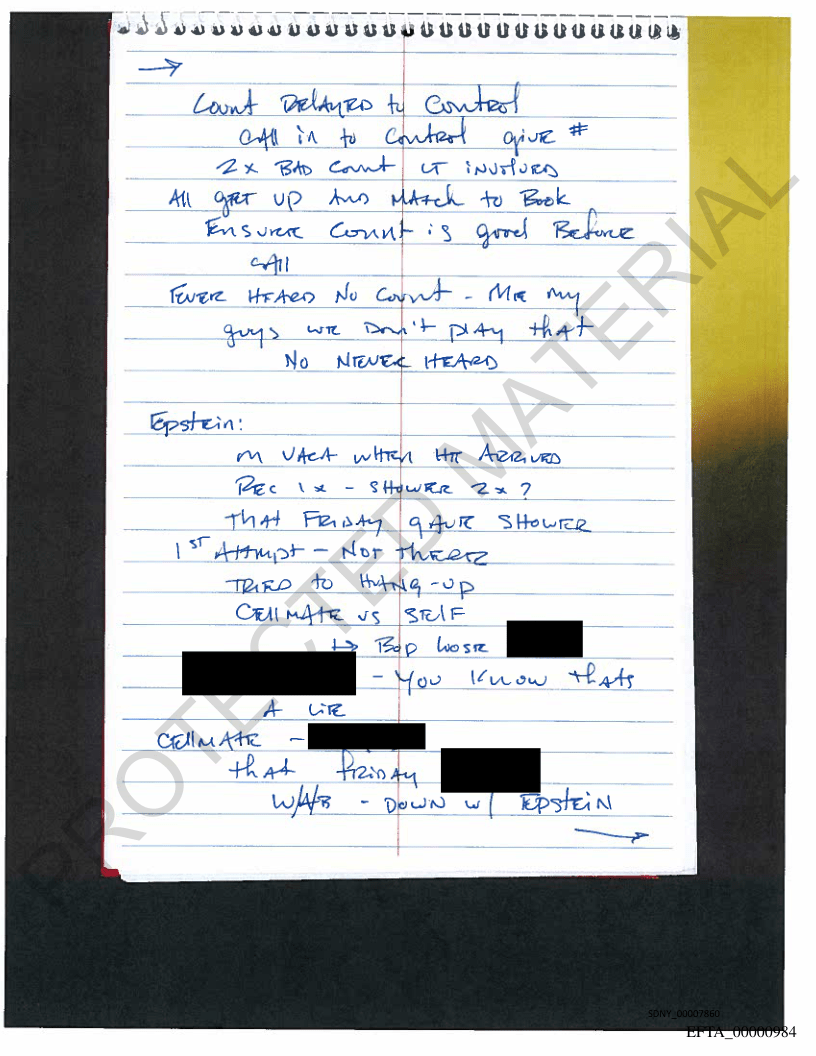 →
Count DELAYED to Control
CAll iN to Control giVE #
2 x BAD Count LT iNVolVED
All gET UP AND MAtch to Book
ENSURE Count is good BeforE
cAll
EVER HEARD No Count - ME my
guys WE DoN't plAy thAt
No NEVER HEARD
Epstein:
ON VACA WHEN HE ARRIVED
REC 1 x - SHOWER 2 x ?
thAt FRiDAy gAVE SHOWER
1ST AttEmpt - Not thERE
TRiED to HANg-Up
CEllMAtE vs SElf
↳ BOP
- YoU KNow thAts
A LiE
CEllMAtE -
thAt fRiDAy
W/A/B - DowN w/ EPstEiN
→
PROTECTED MATERIAL
SDNY_00007860
EFTA_00000984